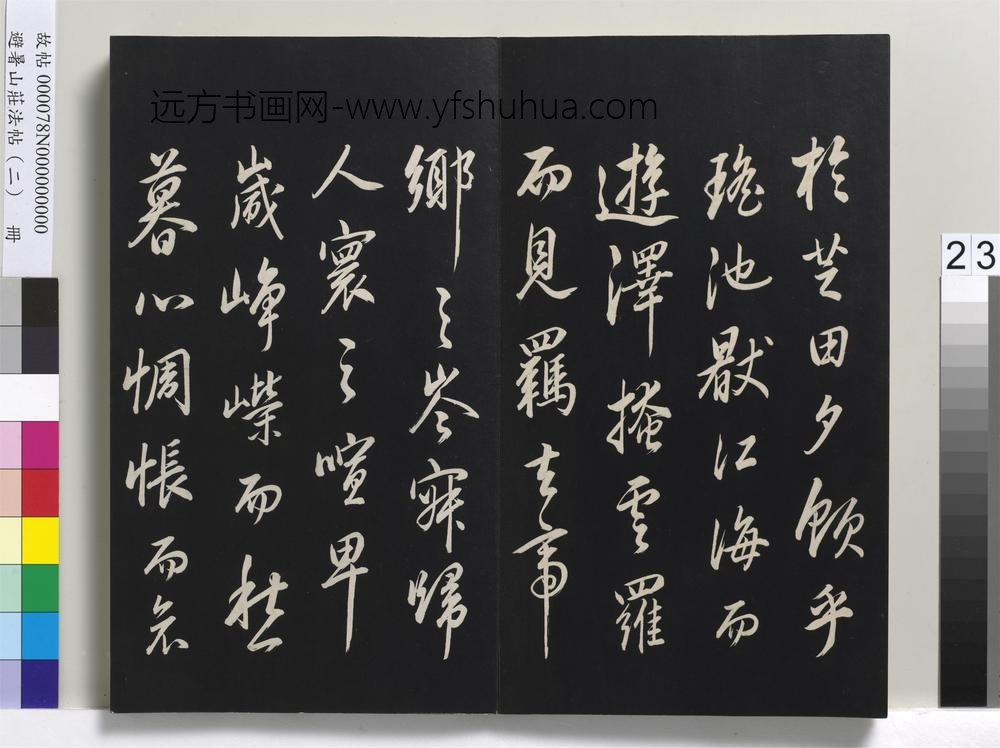 远方书画网-www.yfshuhua.com
於芝田夕飲乎
瑤池猒江海而
遊澤掩雲羅
而見羈去帝
鄉之岑寂歸
人寰之喧卑
歲崢嶸而愁
暮心惆悵而哀
故帖 000078N000000000
避暑山莊法帖(二) 冊
23